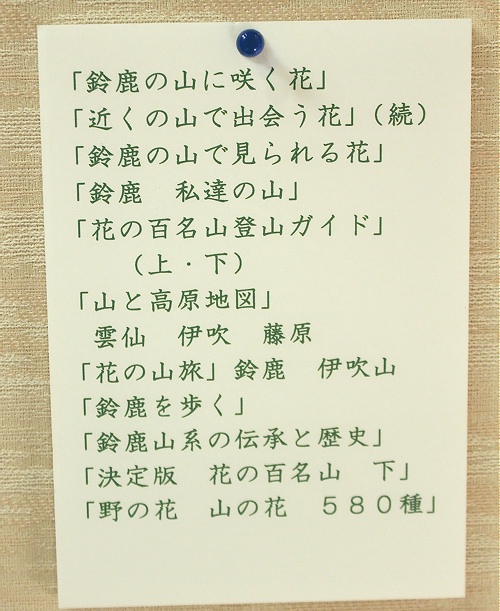 「鈴鹿の山に咲く花」
「近くの山で出会う花」(続)
「鈴鹿の山で見られる花」
「鈴鹿　私達の山」
「花の百名山登山ガイド」
(上・下)
「山と高原地図」
雲仙　伊吹　藤原
「花の山旅」鈴鹿　伊吹山
「鈴鹿を歩く」
「鈴鹿山系の伝承と歴史」
「決定版　花の百名山　下」
「野の花　山の花　５８０種」